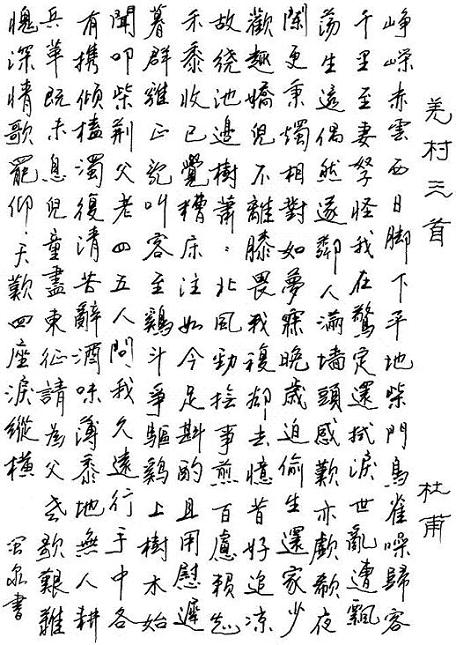 羌村三首 杜甫
崢嶸赤雲西日脚下平地柴門鳥雀噪歸客
千里至妻孥怪我在驚定還拭淚世亂遭飄
蕩生還偶然遂鄰人滿墻頭感歎亦歔欷夜
闌更秉燭相對如夢寐晚歲迫偷生還家少
歡趣嬌兒不離膝畏我復却去憶昔好追凉
故繞池邊樹蕭:北風勁撫事煎百慮賴知
禾黍收已覺糟床注如今足斟酌且用慰遲
暮群雞正亂叫客至鷄斗爭驅鷄上樹木始
聞叩柴荆父老四五人問我久遠行手中各
有携傾榼濁復清苦辭酒味薄黍地無人耕
兵革既未息兒童盡東征請為父老歌艱難
愧深情歌罷仰天歎四座淚縱橫 泉書